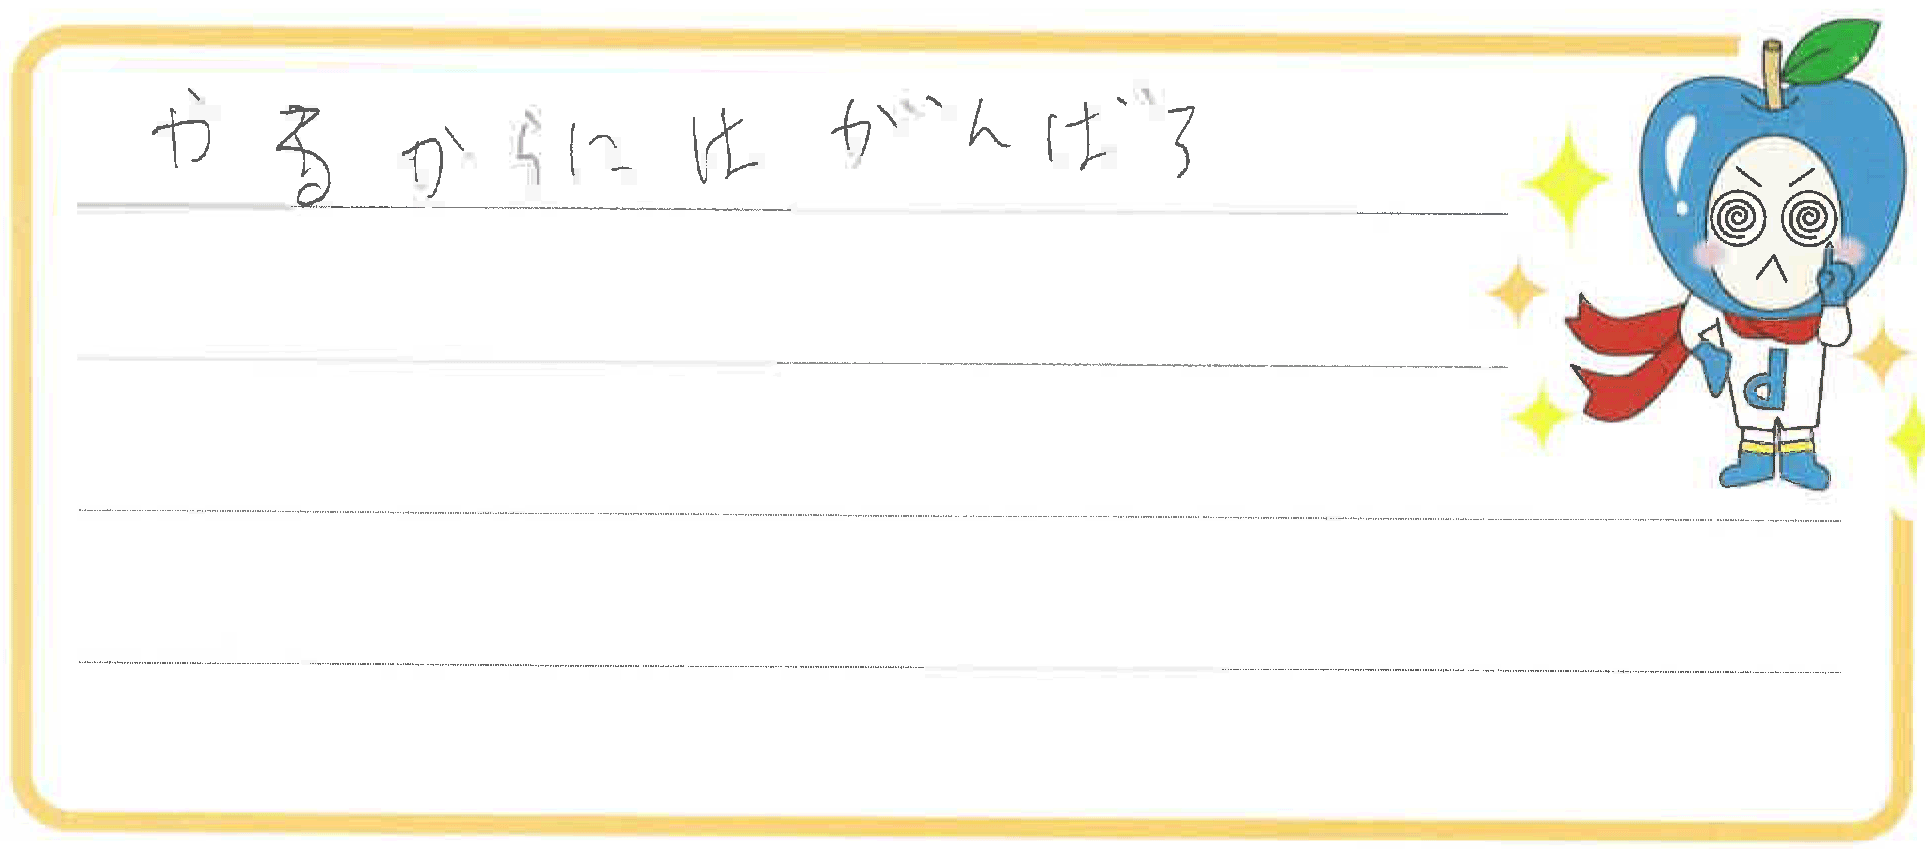 やるからにはがんばろ
d